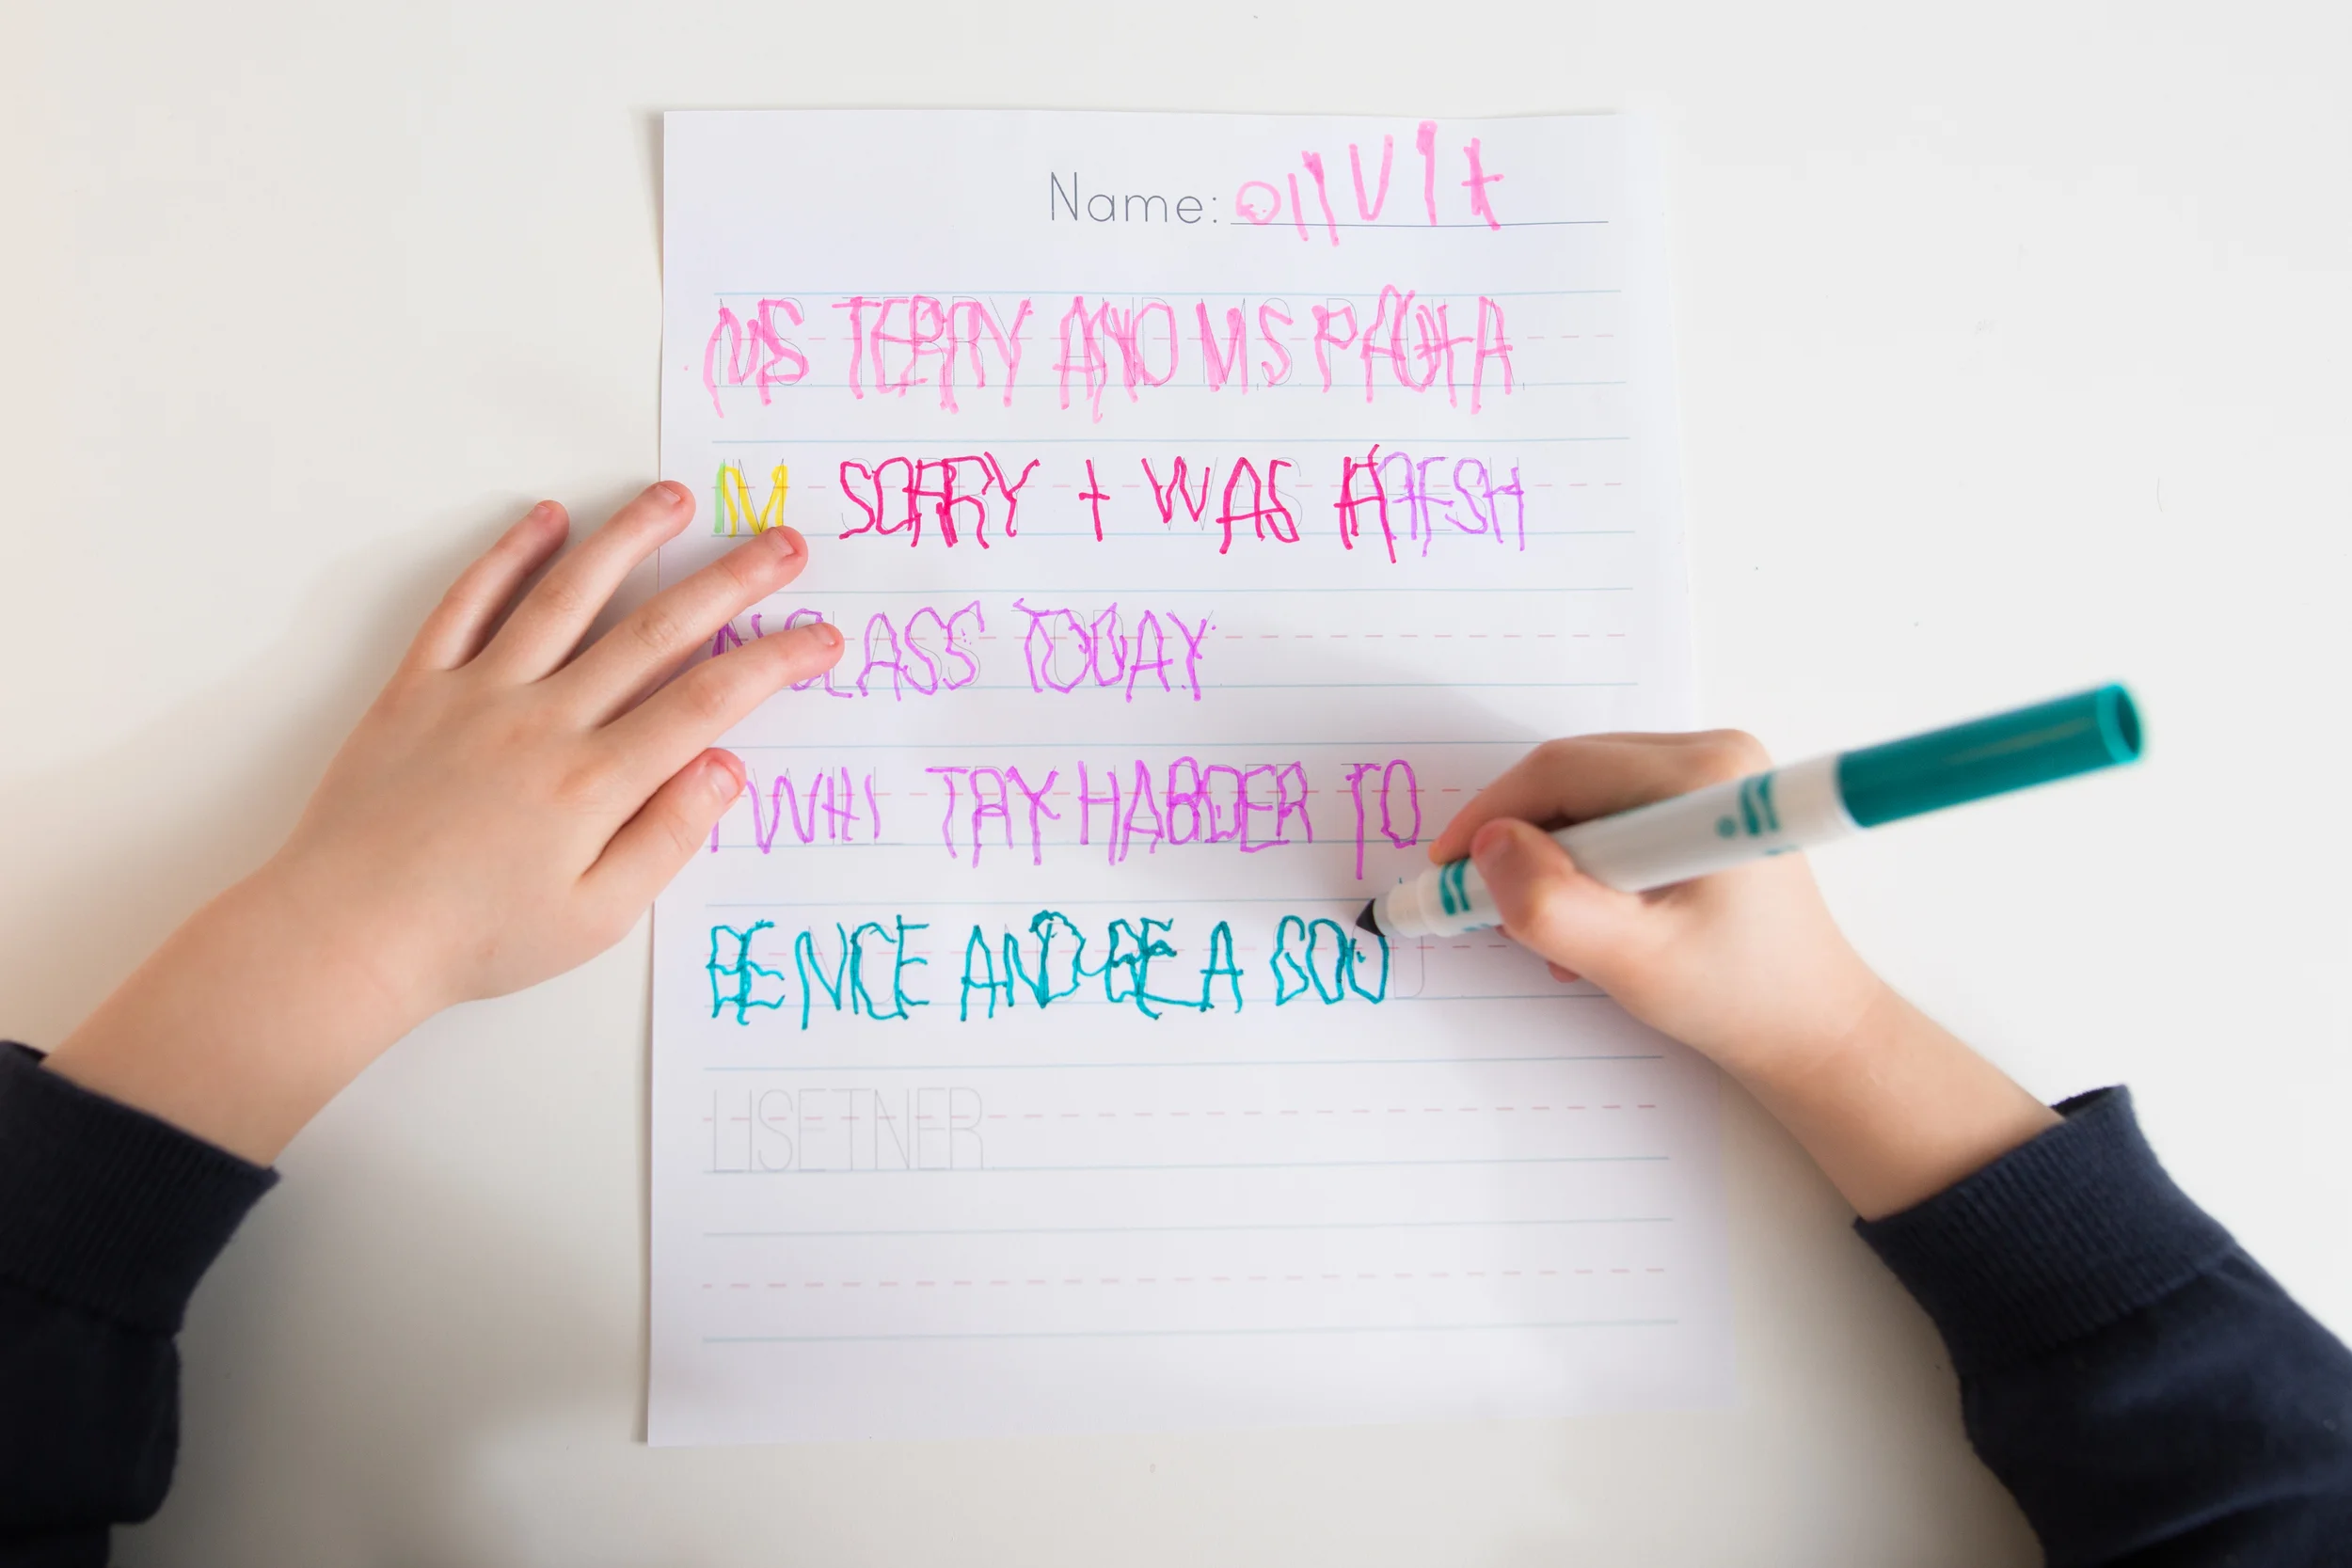 Name: OlIVIA
MS TERRY AND MS PAULA.
IM SORRY I WAS FRESH
IN CLASS TODAY.
I WILL TRY HARDER TO
BE NICE AND BE A GOOD
LISETNER.